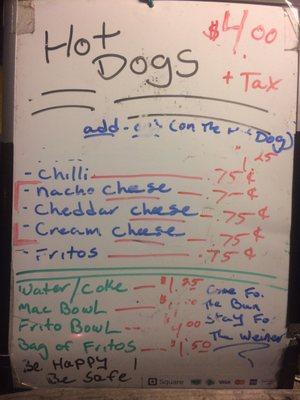 Hot Dogs
$4.00
+ Tax
add - (on the Dog)
1.25
- Chilli .75¢
- Nacho Cheese .75¢
- Cheddar cheese .75¢
- Cream cheese .75¢
- Fritos .75¢
Water/Coke - $1.25
Mac Bowl
Frito Bowl - 4.00
Bag of Fritos - $1.50
Come For
The Bun
Stay For
The Weiner
Be Happy !
Be Safe
Square